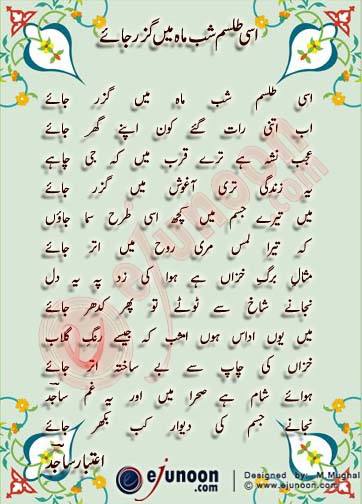 اسی طلسم شب ماہ میں گزر جائے
اسی طلسم شب ماہ میں گزر جائے
اب اتنی رات گئے کون اپنے گھر جائے
عجب نشہ ہے ترے قرب میں کہ جی چاہے
یہ زندگی تری آغوش میں گزر جائے
میں تیرے جسم میں کچھ اسی طرح سما جاؤں
کہ تیرا لمس مری روح میں اتر جائے
مثال برگِ خزاں ہے ہوا کی زد پہ یہ دل
نجانے شاخ سے ٹوٹے تو پھر کدھر جائے
میں یوں اداس ہوں امشب کہ جیسے رنگِ گلاب
خزاں کی چاپ سے بے ساختہ اتر جائے
ہوائے شام ہے صحرا میں اور یہ غم ساجد
نجانے جسم کی دیوار کب بکھر جائے
اعتبار ساجد
ejunoon.com
Designed by: M.Mughal
www.ejunoon.com
ejunoon.com